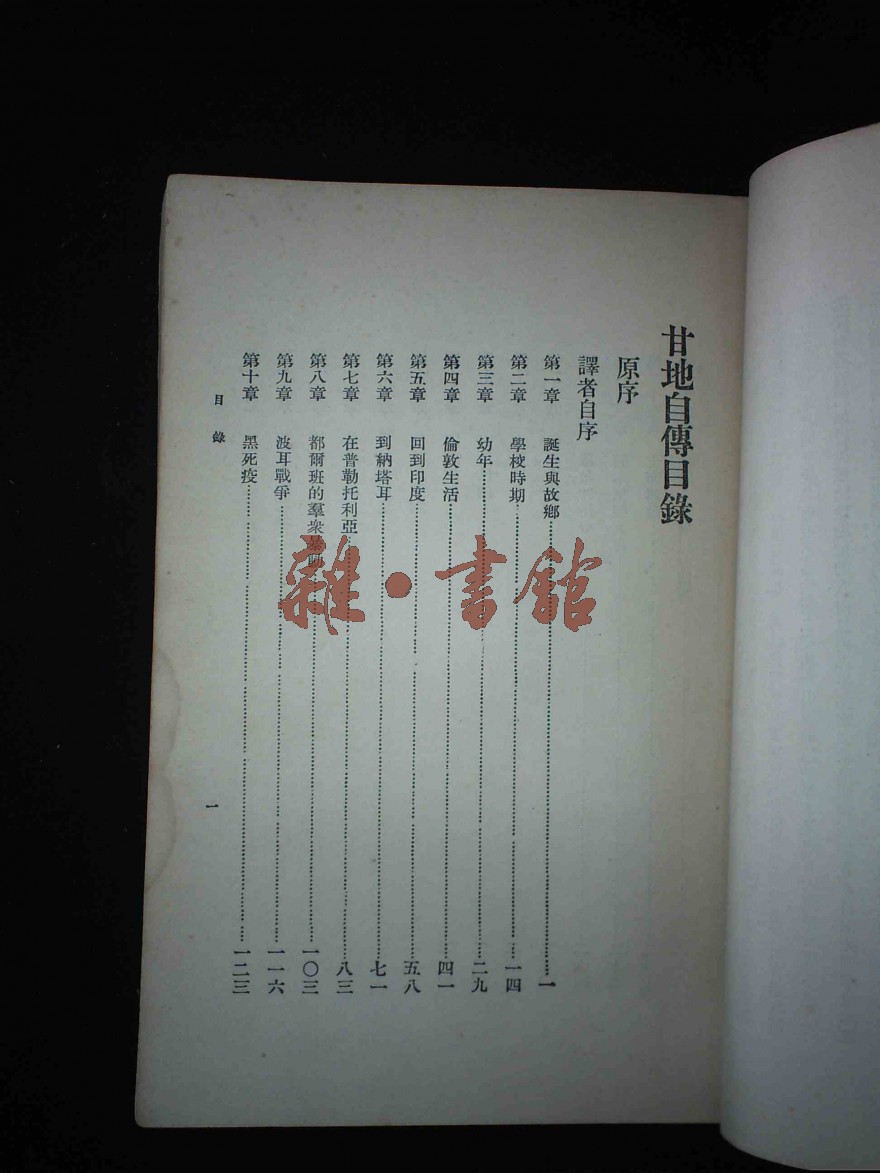 甘地自傳目錄
原序
譯者自序
第一章 誕生與故鄉 一
第二章 學校時期 一四
第三章 幼年 二九
第四章 倫敦生活 四一
第五章 回到印度 五八
第六章 到納塔耳 七一
第七章 在普勒托利亞 八三
第八章 都爾班的羣衆暴動 一〇三
第九章 波耳戰爭 一一六
第十章 黑死疫 一二三
目錄 一
雜·書館